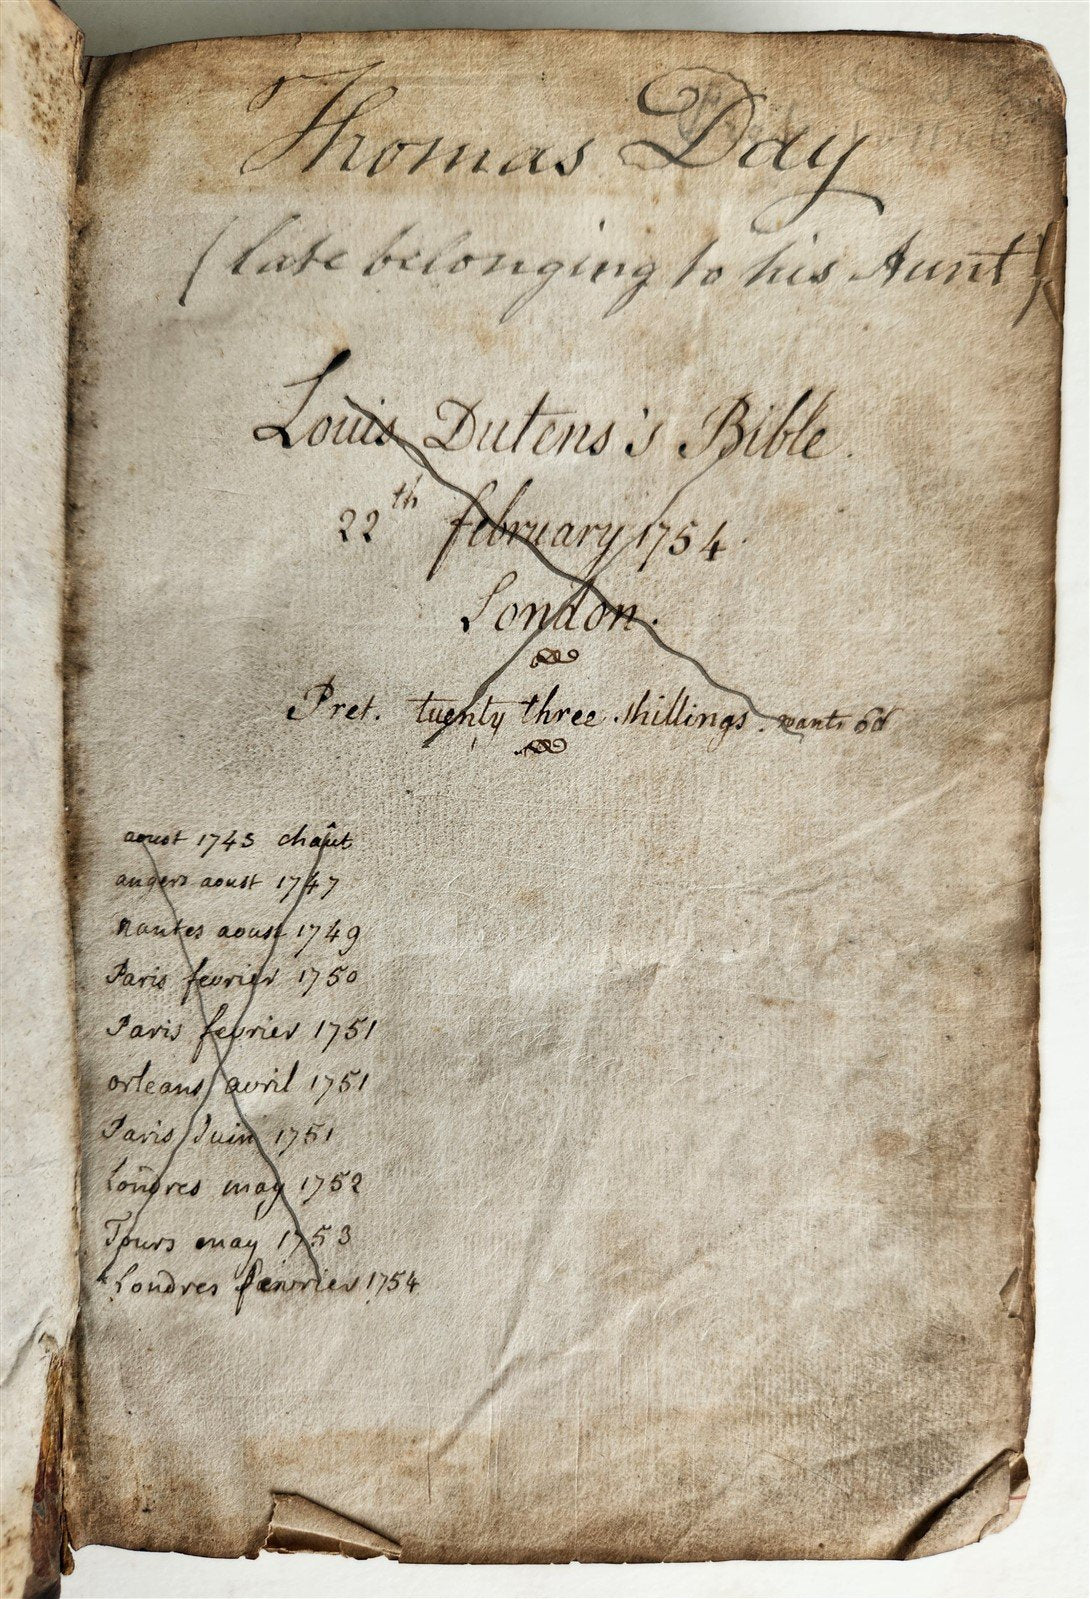 Thomas Day
(late belonging to his Aunt)
Louis Dutens's Bible.
22th february 1754.
London.
Pret. twenty three shillings. wants 6d
aoust 1743 chaût
angers aoust 1747
Nantes aoust 1749
Paris fevrier 1750
Paris fevrier 1751
orleans avril 1751
Paris Juin 1751
Londres may 1752
Tours may 1753
Londres fevrier 1754